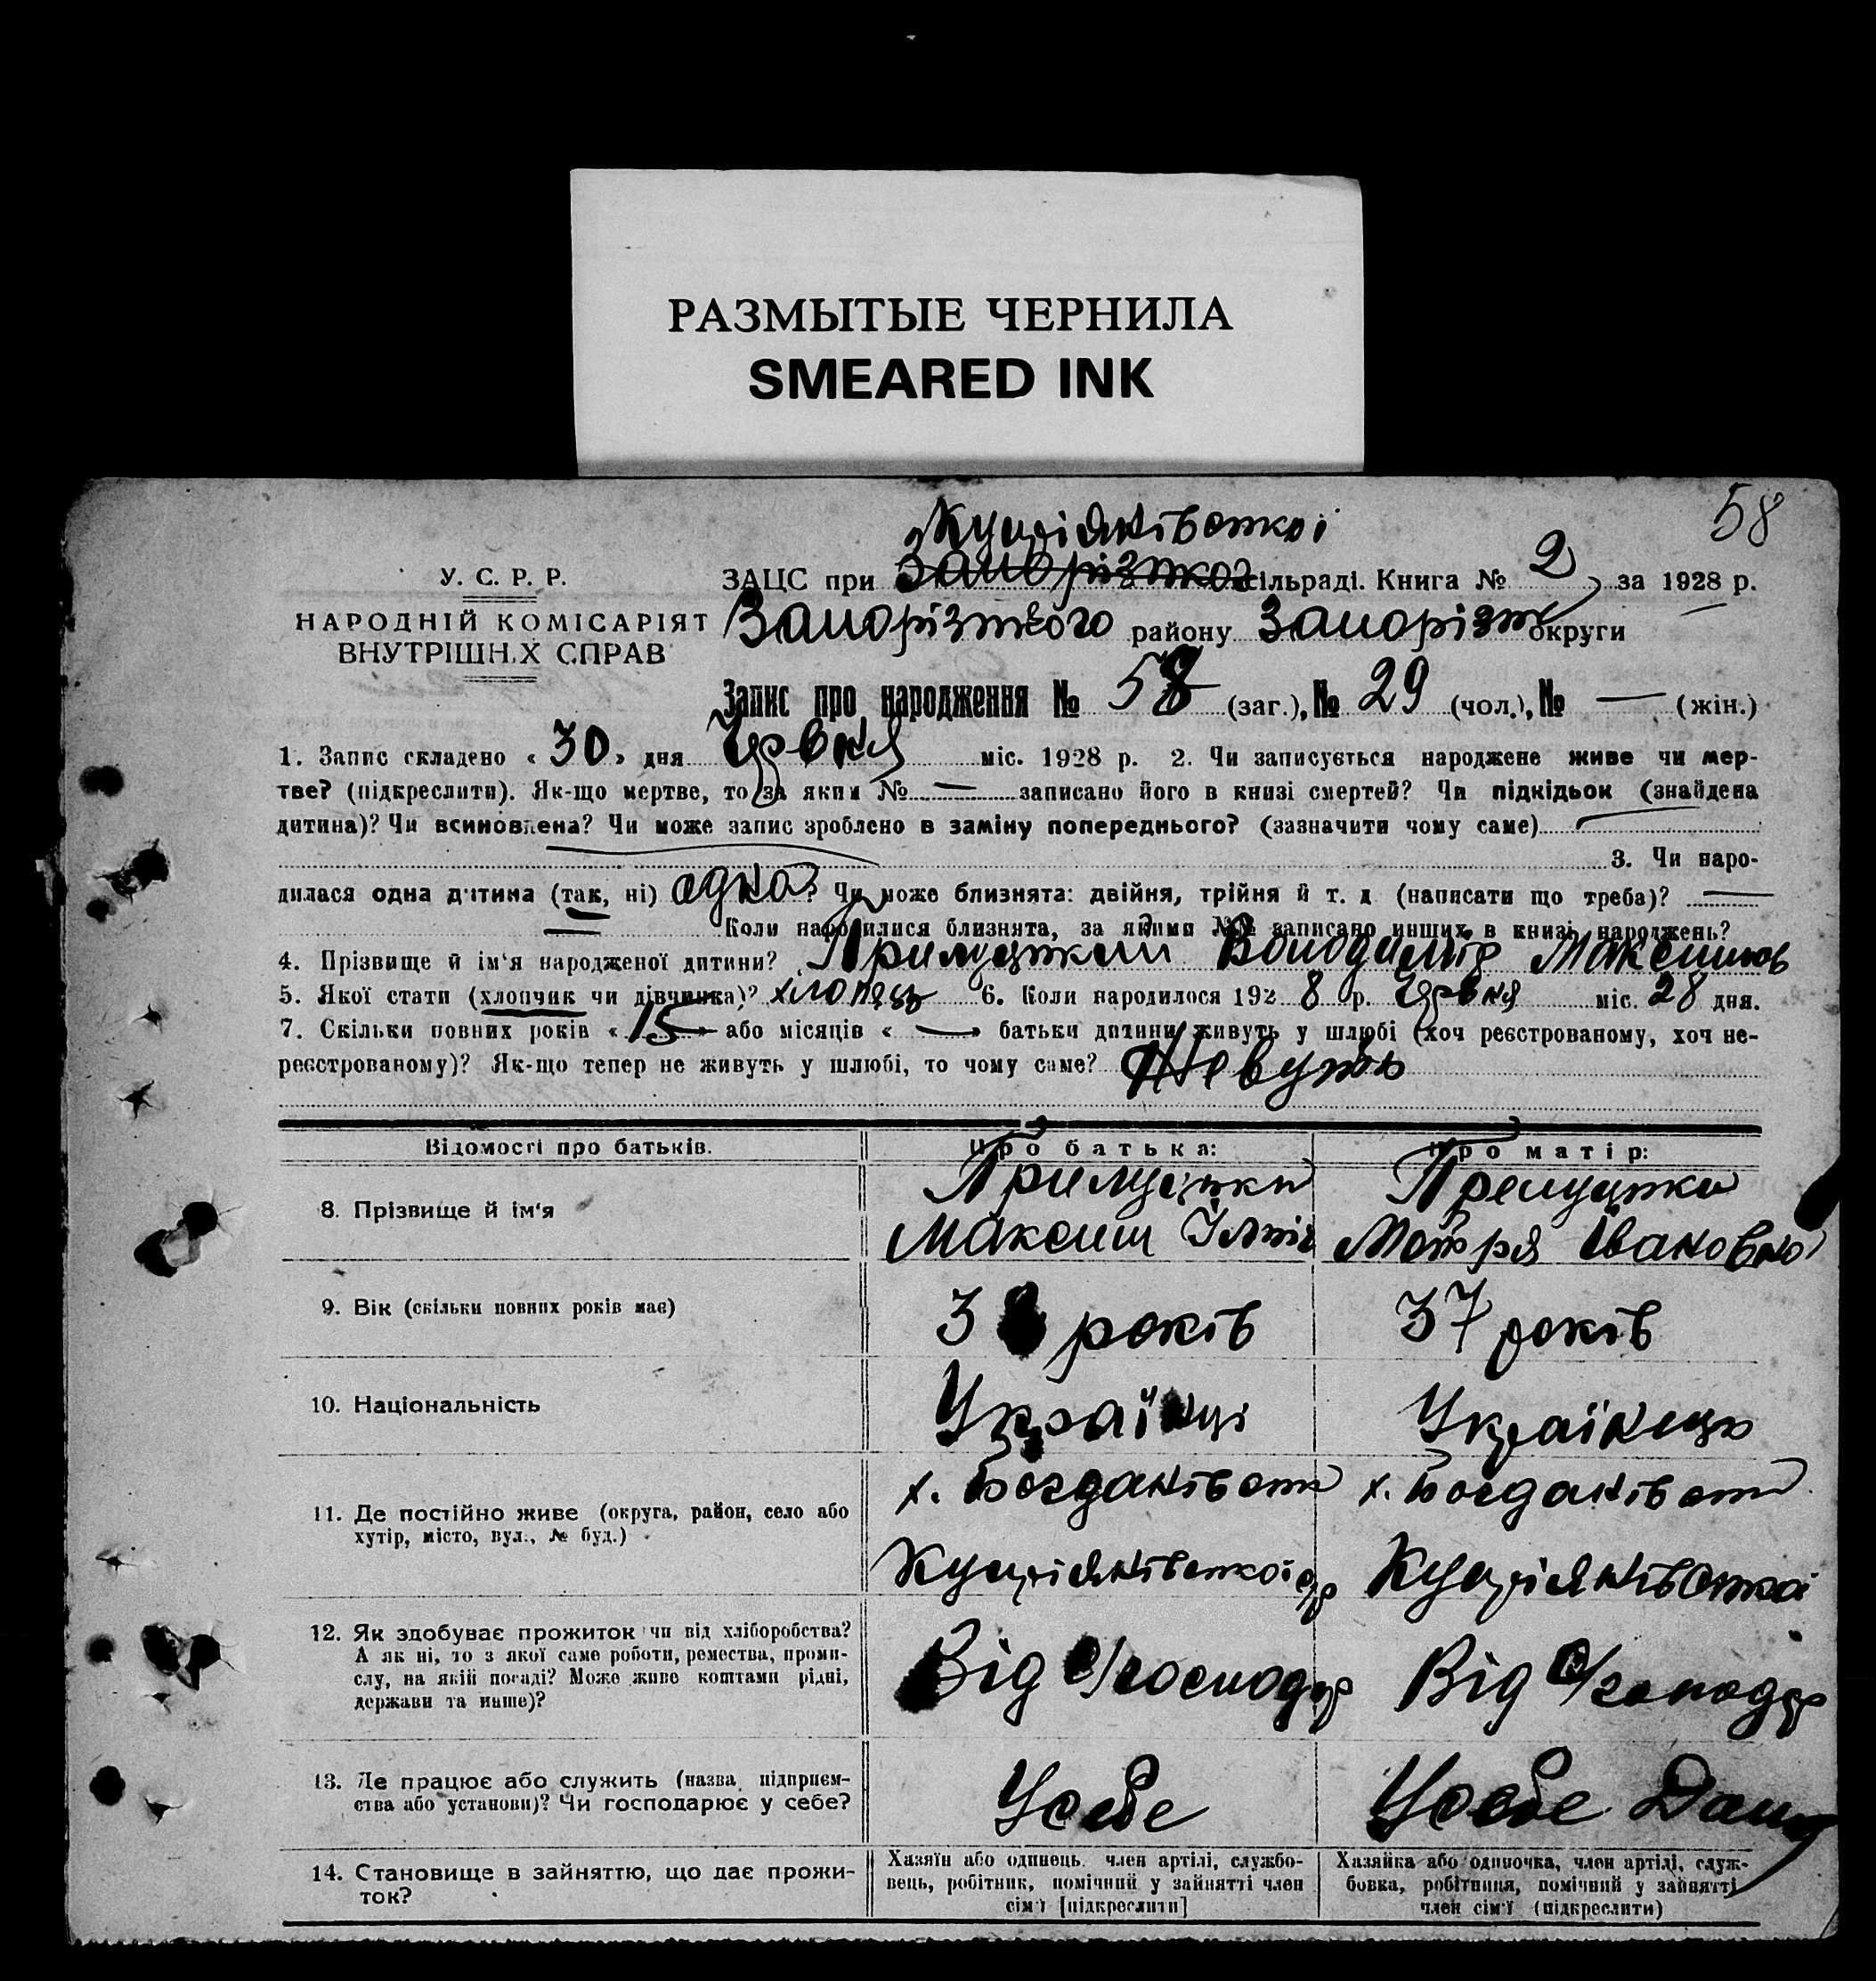 РАЗМЫТЫЕ ЧЕРНИЛА
SMEARED INK
58
Купріянівської
У. С. Р. Р.
ЗАЦС при Запорізкої сільраді. Книга № 2 за 1928 р.
НАРОДНІЙ КОМІСАРІЯТ
ВНУТРІШНІХ СПРАВ
Запорізького району Запорізк округи
Запис про народження № 58 (заг.), № 29 (чол.), № — (жін.)
1. Запис складено « 30 » дня Червня міс. 1928 р. 2. Чи записується народжене живе чи мер-
тве? (підкреслити). Як-що мертве, то за яким № — записано його в книзі смертей? Чи підкідьок (знайдена
дитина)? Чи всиновлена? Чи може запис зроблено в заміну попереднього? (зазначити чому саме)
3. Чи наро-
дилася одна дитина (так, ні) одна? Чи може близнята: двійня, трійня й т. д (написати що треба)? —
— Коли народилися близнята, за якими №№ записано инших в книзі народжень?
4. Прізвище й ім'я народженої дитини? Прилуцкий Володимір Максимов
5. Якої стати (хлопчик чи дівчинка)? хлопець 6. Коли народилося 192 8 р. Червня міс. 28 дня.
7. Скільки повних років « 15 » або місяців « — » батьки дитини живуть у шлюбі (хоч реєстрованому, хоч не-
реєстрованому)? Як-що тепер не живуть у шлюбі, то чому саме? Живуть
Відомості про батьків.
Про батька:
Про матір:
8. Прізвище й ім'я
Прилуцки
Максим Ілліч
Прелуцки
Мотря Івановна
9. Вік (скільки повних років має)
38 років
37 років
10. Національність
Українці
Українець
11. Де постійно живе (округа, район, село або
хутір, місто, вул., № буд.)
х. Богданівськ
Купріянівської с/р
х. Богданівськ
Купріянівської
12. Як здобуває прожиток чи від хліборобства?
А як ні, то з якої саме роботи, ремества, проми-
слу, на якій посаді? Може живе коштами рідні,
держави та инше)?
Від с/господар
Від с/господар
13. Де працює або служить (назва підприєм-
ства або установи)? Чи господарює у себе?
Усебе
Усебе Дома
14. Становище в зайняттю, що дає прожи-
ток?
Хазяїн або одинець, член артілі, службо-
вець, робітник, помічний у зайнятті член
сім'ї [підкреслити]
Хазяйка або одиночка, член артілі, служ-
бовка, робітниця, помічний у зайнятті
член сім'ї (підкреслити)